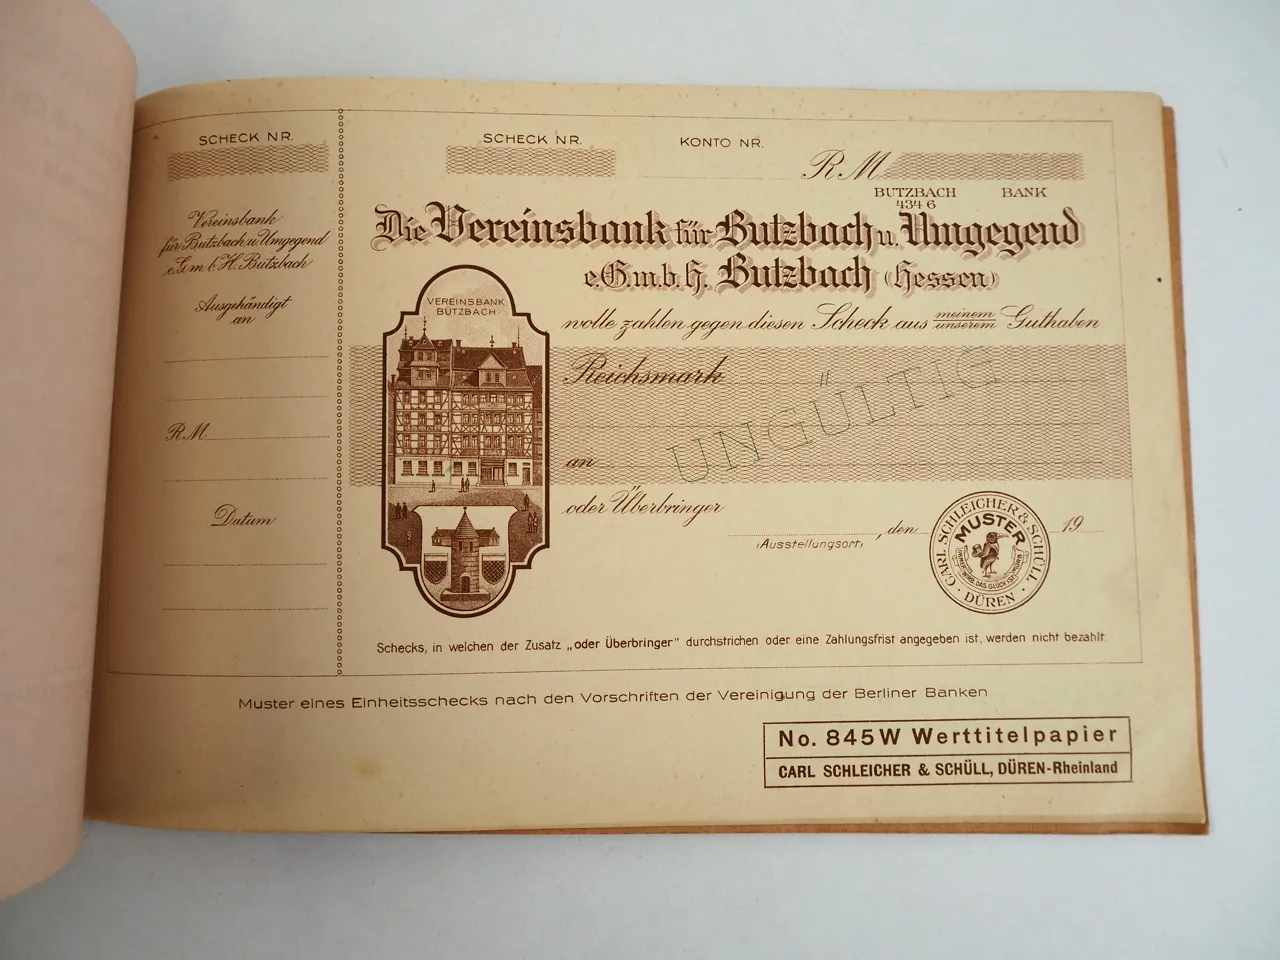 SCHECK NR.
Vereinsbank
für Butzbach u. Umgegend
e.G.m.b.H. Butzbach
Ausgehändigt
an
RM
Datum
SCHECK NR.
KONTO NR.
RM
BUTZBACH BANK
4346
Die Vereinsbank für Butzbach u. Umgegend
e.G.m.b.H. Butzbach (Hessen)
VEREINSBANK
BUTZBACH
wolle zahlen gegen diesen Scheck aus meinem unserem Guthaben
Reichsmark
UNGÜLTIG
an
oder Überbringer
, den 19
(Ausstellungsort)
CARL SCHLEICHER & SCHÜLL
MUSTER
· DÜREN ·
Schecks, in welchen der Zusatz „oder Überbringer" durchstrichen oder eine Zahlungsfrist angegeben ist, werden nicht bezahlt.
Muster eines Einheitsschecks nach den Vorschriften der Vereinigung der Berliner Banken
No. 845W Werttitelpapier
CARL SCHLEICHER & SCHÜLL, DÜREN-Rheinland